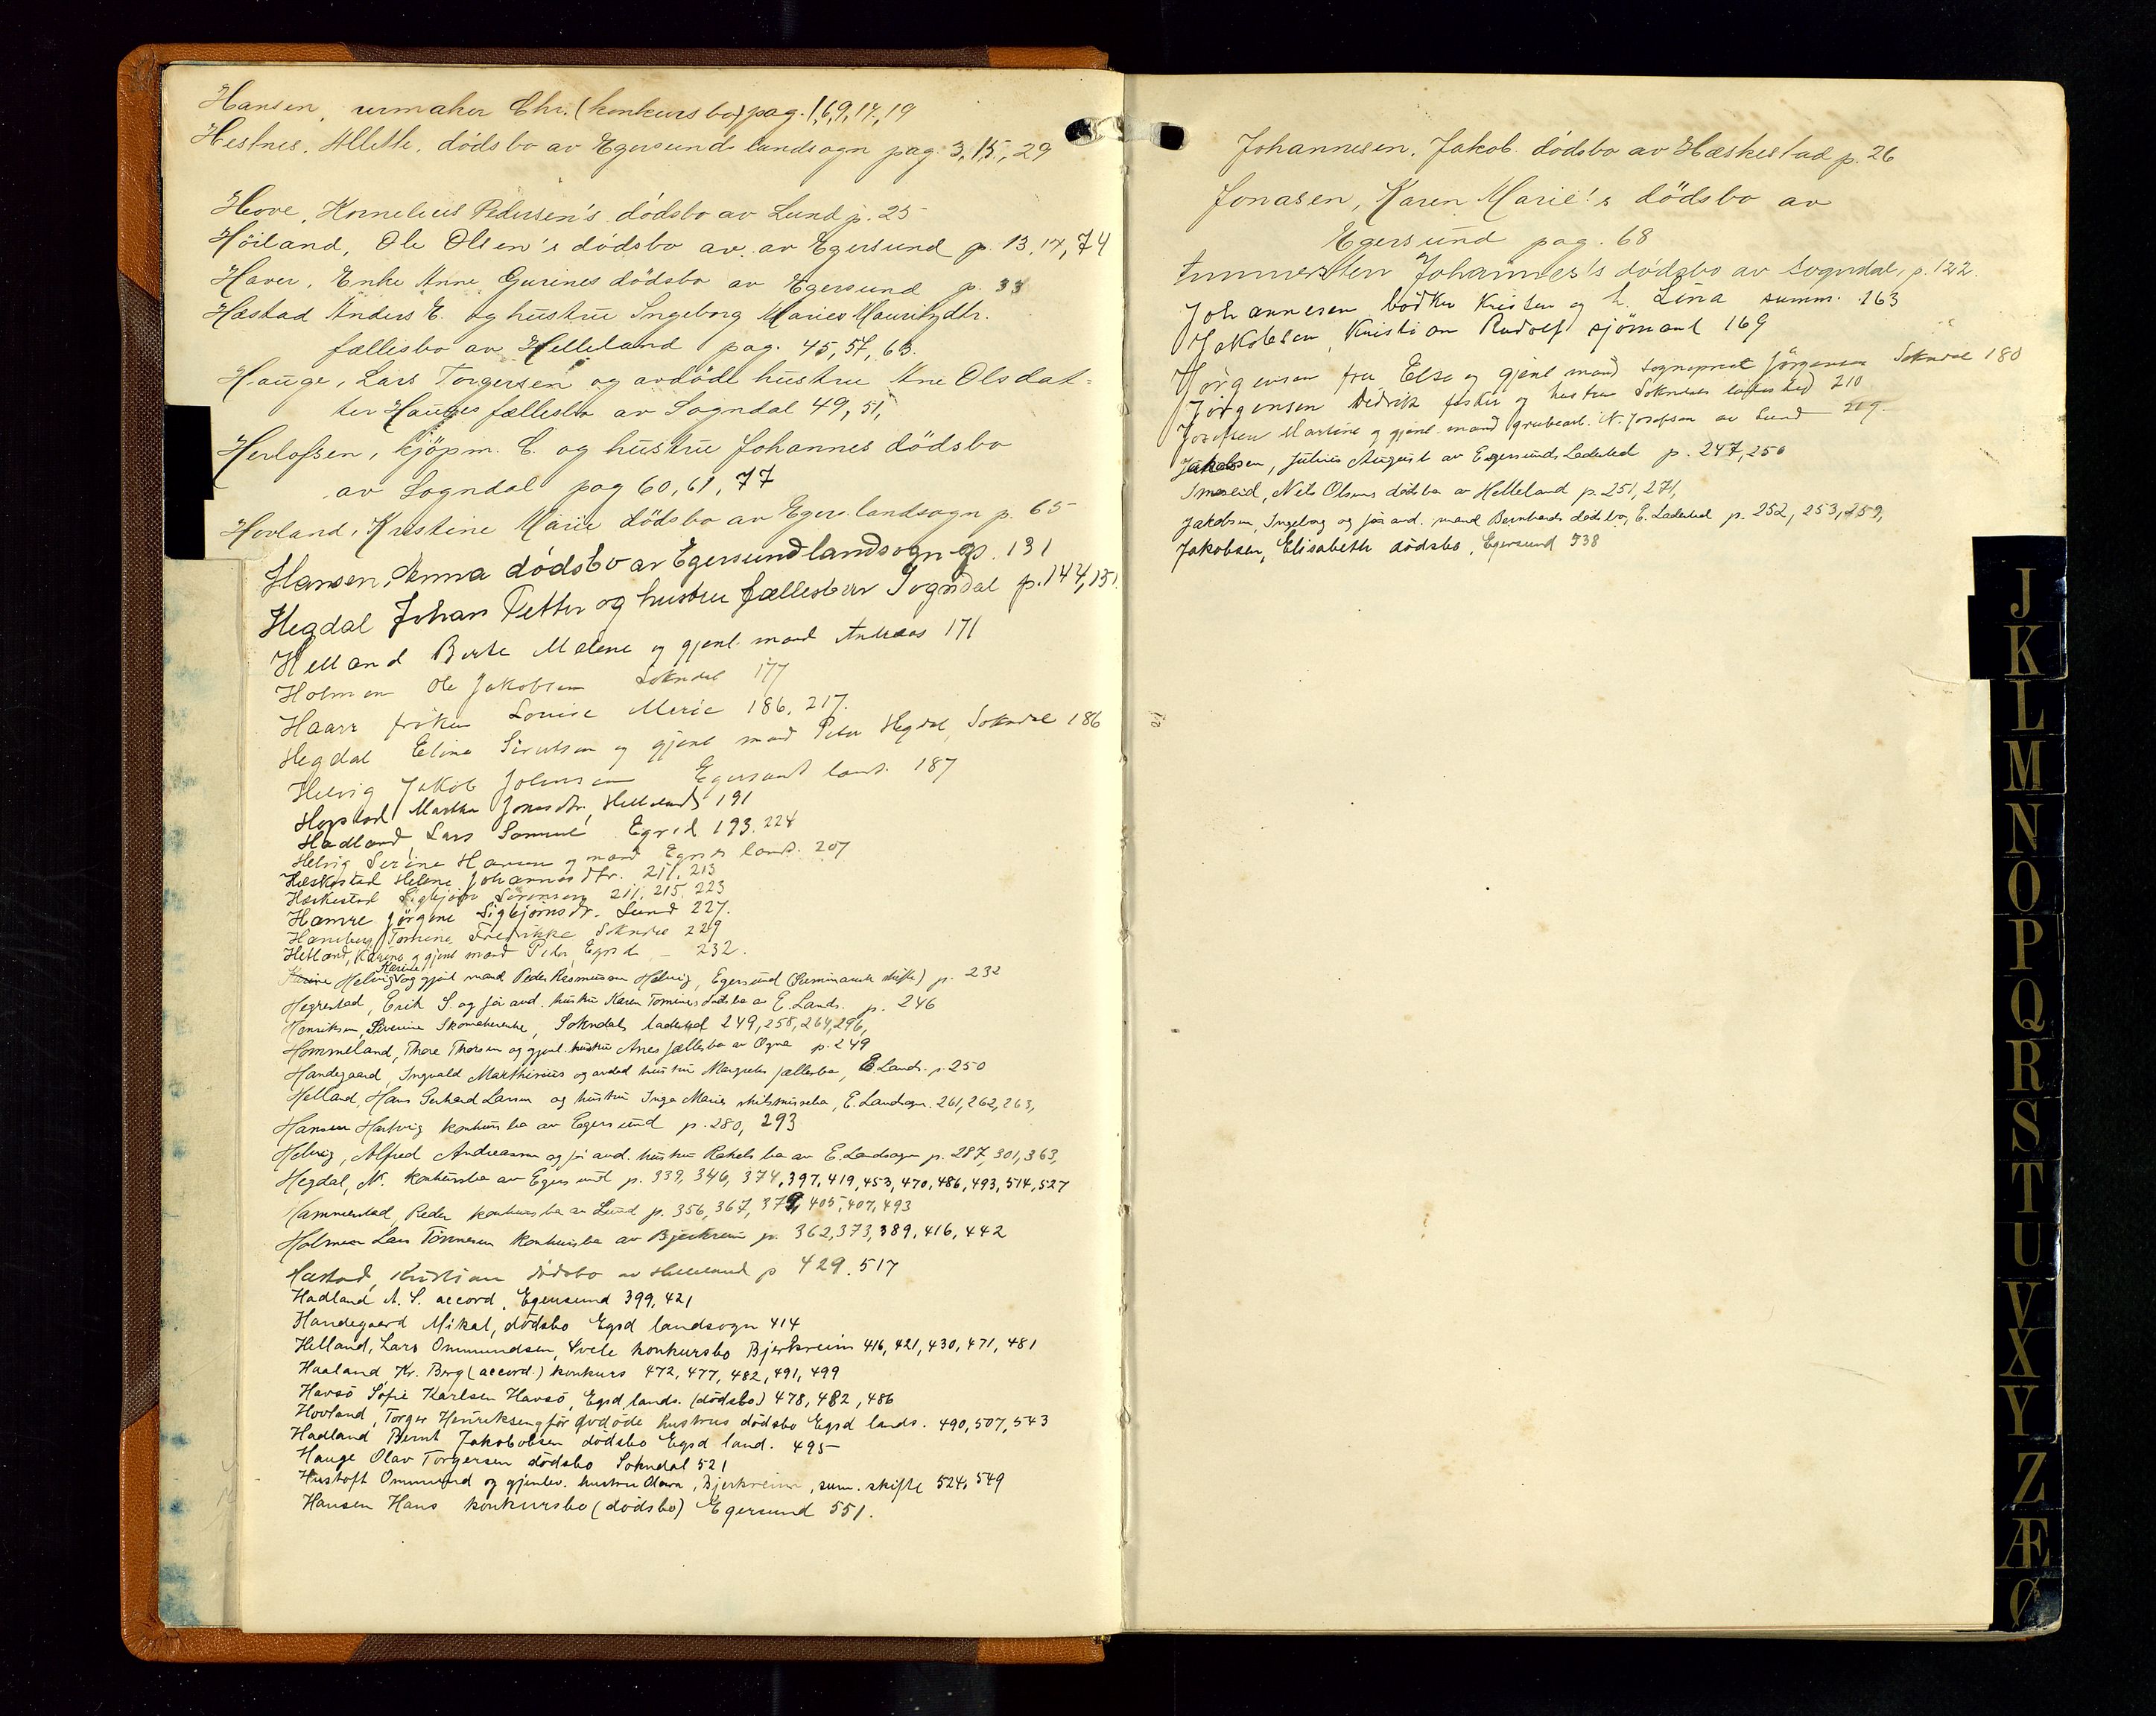 Hansen, urmaker Chr. (konkursbo) pag. 1,6,9,14,19
Hestnes, Allette, dödsbo av Egersunds landsogn pag 3,15,29
Hove, Kornelius Pedersen's dödsbo av Lund p. 25
Höiland, Ole Olsen's dödsbo av. av Egersund p. 13,14,74
Haver, Enke Anne Gurines dödsbo av Egersund p. 33
Hæstad Anders E. og hustru Ingeborg Maries Mauritzdtr.
fællesbo av Helleland pag. 45,57,63.
Hauge, Lars Torgersen og avdöde hustru Ane Olsdat-
ter Hauges fællesbo av Sogndal 49,51,
Herlofsen, kjöpm. C. og hustru Johannes dödsbo
av Sogndal pag 60,61,77
Hovland, Kristine Marie dödsbo av Egers. landsogn p. 65
Hansen, Anna dödsbo av Egersund landsogn p. 131
Hegdal Johan Petter og hustru fællesbo av Sogndal p. 144,151.
Helland Berte Malene og gjenl. mand Andreas 171
Holmen Ole Jakobsen Sokndal 177
Haarr fröken Louise Merie 186, 217.
Hegdal Eline Sivertsen og gjenl mand Peder Hegdal, Sokndal 186
Helvig Jakob Johnsen Egersund lands. 187
Hopstad Martha Jonasdtr, Helleland 191
Hadland, Lars Samuel Egsd 193. 224
Helvig Serine Hansen og mand Egsds lands. 207
Hæskestad Helene Johannesdtr. 211. 213
Hæskestad Sigbjörn Sörensen 211. 215. 223
Hamre Jörgine Sigbjörnsdtr. Lund 227.
Haneberg Tomine Fredrikke Sokndal 229
Hetland, Karine og gjenl mand Peder, Egsd – 232.
Karine
Helvig og gjenl mand Peder Rasmussen Helvig, Egersund (Summarisk skifte) p. 232
Hegrestad, Erik S. og för avd. hustru Karen Tomines dødsbo av E. Lands. p. 246
Henriksen, Severine Skomakerenke, Sokndals ladested 249, 258, 264, 296,
Hommeland, Thore Thorsen og gjenl. hustru Anes fællesbo av Ogna p. 249
Handegaard, Ingvald Marthinius og avdød hustru Margrethes fællesbo, E. Lands. p. 250
Helland, Hans Gerhard Larsen og hustru Inga Maries skilsmissebo, E. Landsogn. 261, 262, 263,
Hansen Hartvig konkursbo av Egersund p. 280, 293
Helvig, Alfred Andreassen og för avd. hustru Rakels bo av E. Landsogn p. 287, 301, 363,
Hegdal, N. Konkursbo av Egersund p. 339, 346, 374, 397, 419, 453, 470, 486, 493, 514, 527
Hammerstad, Peder konkursbo av Lund p. 356, 367, 379, 405, 407, 493
Holmen Lars Tönnesen konkursbo av Bjerkreim p. 362, 373, 389, 416, 442
Hæstad, Kristian dödsbo av Helleland p 429. 517
Hadland A. S. accord, Egersund 399, 421
Handegaard Mikal, dödsbo Egsd landsogn 414
Helland, Lars Ommundsen, Svele konkursbo Bjerkreim 416, 421, 430, 471, 481
Haaland, Kr. Berg (accord.) konkurs 472, 477, 482, 491, 499
Havsö Sofie Karlsen Havsö, Egsd lands. (dödsbo) 478, 482, 486
Hovland, Torger Henriksen og för avdöde hustrus dödsbo Egsd lands. 490, 507, 543
Hadland Bernt Jakobsen dödsbo Egsd land. 495
Hauge Olav Torgersen dödsbo Sokndal 521
Hustoft Ommund og gjenlev. hustru Olava, Bjerkreim, sum. skifte 524, 549
Hansen Hans konkursbo (dödsbo) Egersund 551.
Johannesen, Jakob dödsbo av Hæskestad p. 26
Jonasen, Karen Marie's dödsbo av
Egersund pag. 68
Immerstein Johannes's dödsbo av Sogndal, p. 122.
Johannesen bödker Kristen og h. Lina summ. 163
Jakobsen, Kristian Rudolf sjömand 169
Jörgensen fru Elsa og gjenl mand sogneprest Jörgensen Sokndal 180
Jörgensen Didrik fisker og hustru Sokndals ladested 210
Josefsen Martine og gjenl. mand grubearb. N. Josefsen av Lund 219.
Jakobsen, Julius August av Egersunds Ladested p. 247, 250
Imeslid, Nils Olsens dødsbo av Helleland p. 251, 271,
Jakobsen, Ingeborg og för avd. mand Bernhards dødsbo, E. Ladested p. 252, 253, 259,
Jakobsen, Elisabeth dödsbo, Egersund 538
J
K
L
M
N
O
P
Q
R
S
T
U
V
X
Y
Z
Æ
Ø